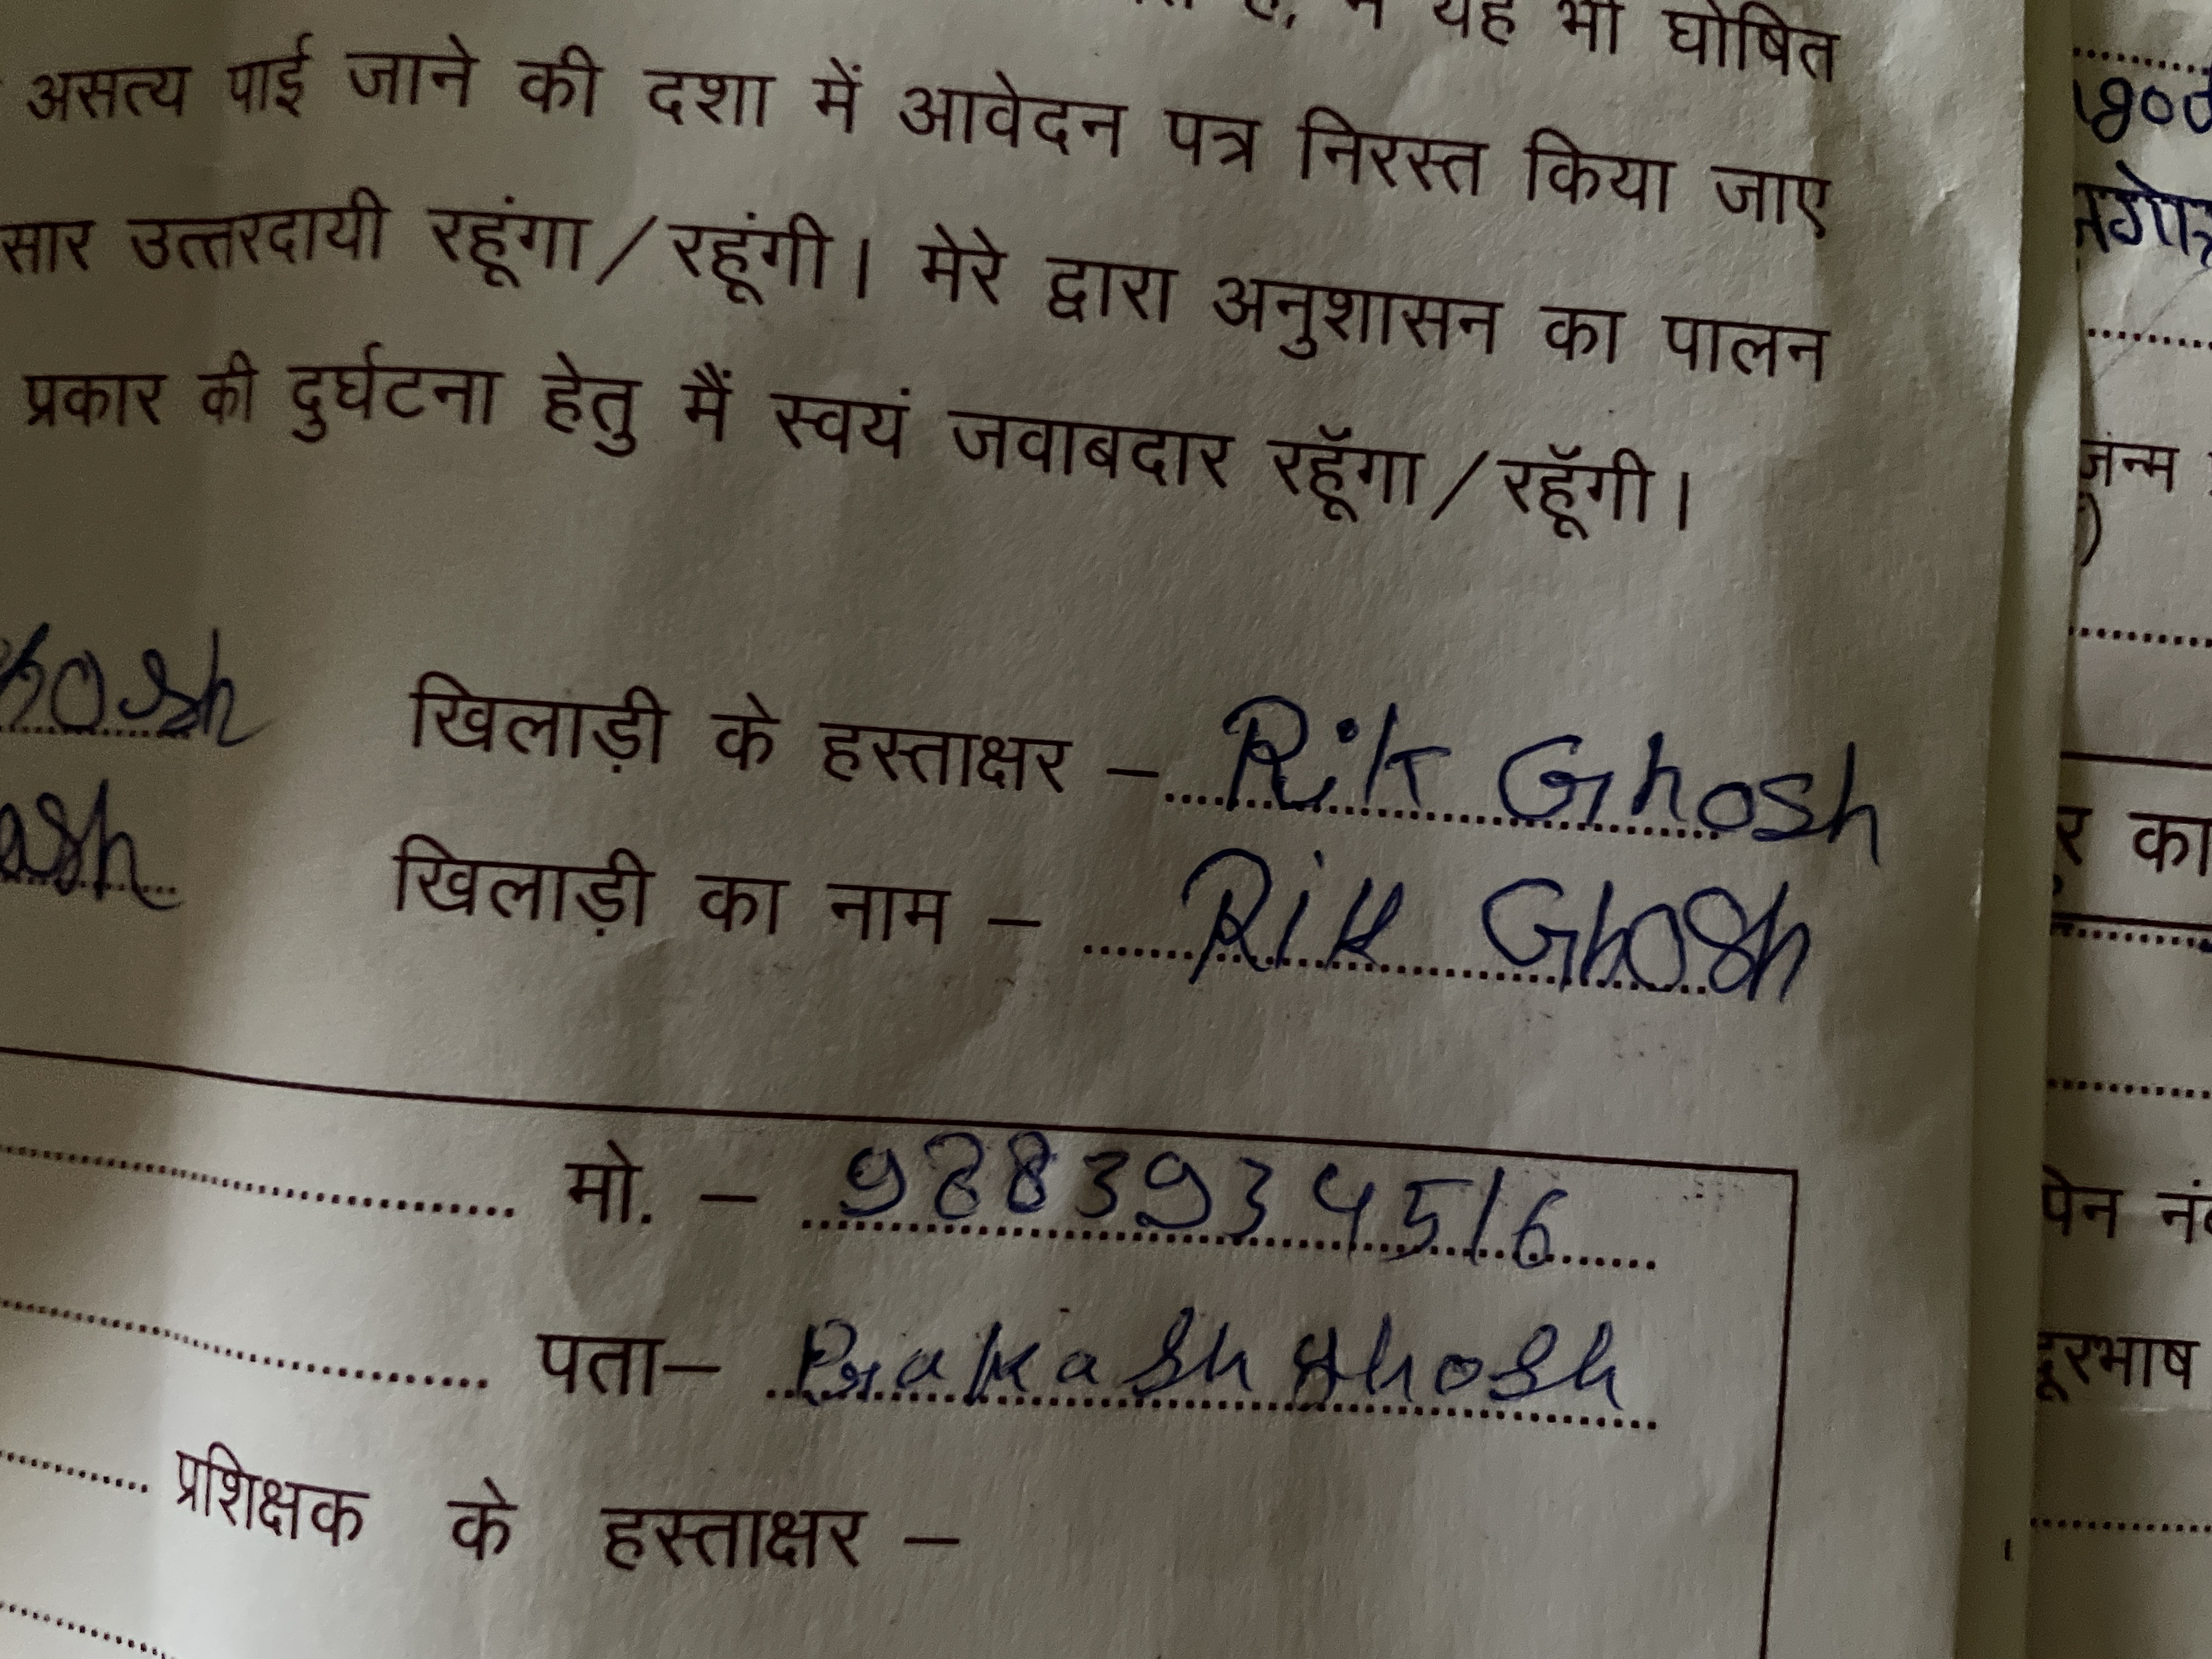 यह भी घोषित
असत्य पाई जाने की दशा में आवेदन पत्र निरस्त किया जाए
सार उत्तरदायी रहूंगा/रहूंगी। मेरे द्वारा अनुशासन का पालन
प्रकार की दुर्घटना हेतु मैं स्वयं जवाबदार रहूॅगा/रहूॅगी।
खिलाड़ी के हस्ताक्षर – Rik Ghosh
खिलाड़ी का नाम – Rik Ghosh
मो. – 9883934516
पता– Prakash Ghosh
प्रशिक्षक के हस्ताक्षर –
जन्म
का